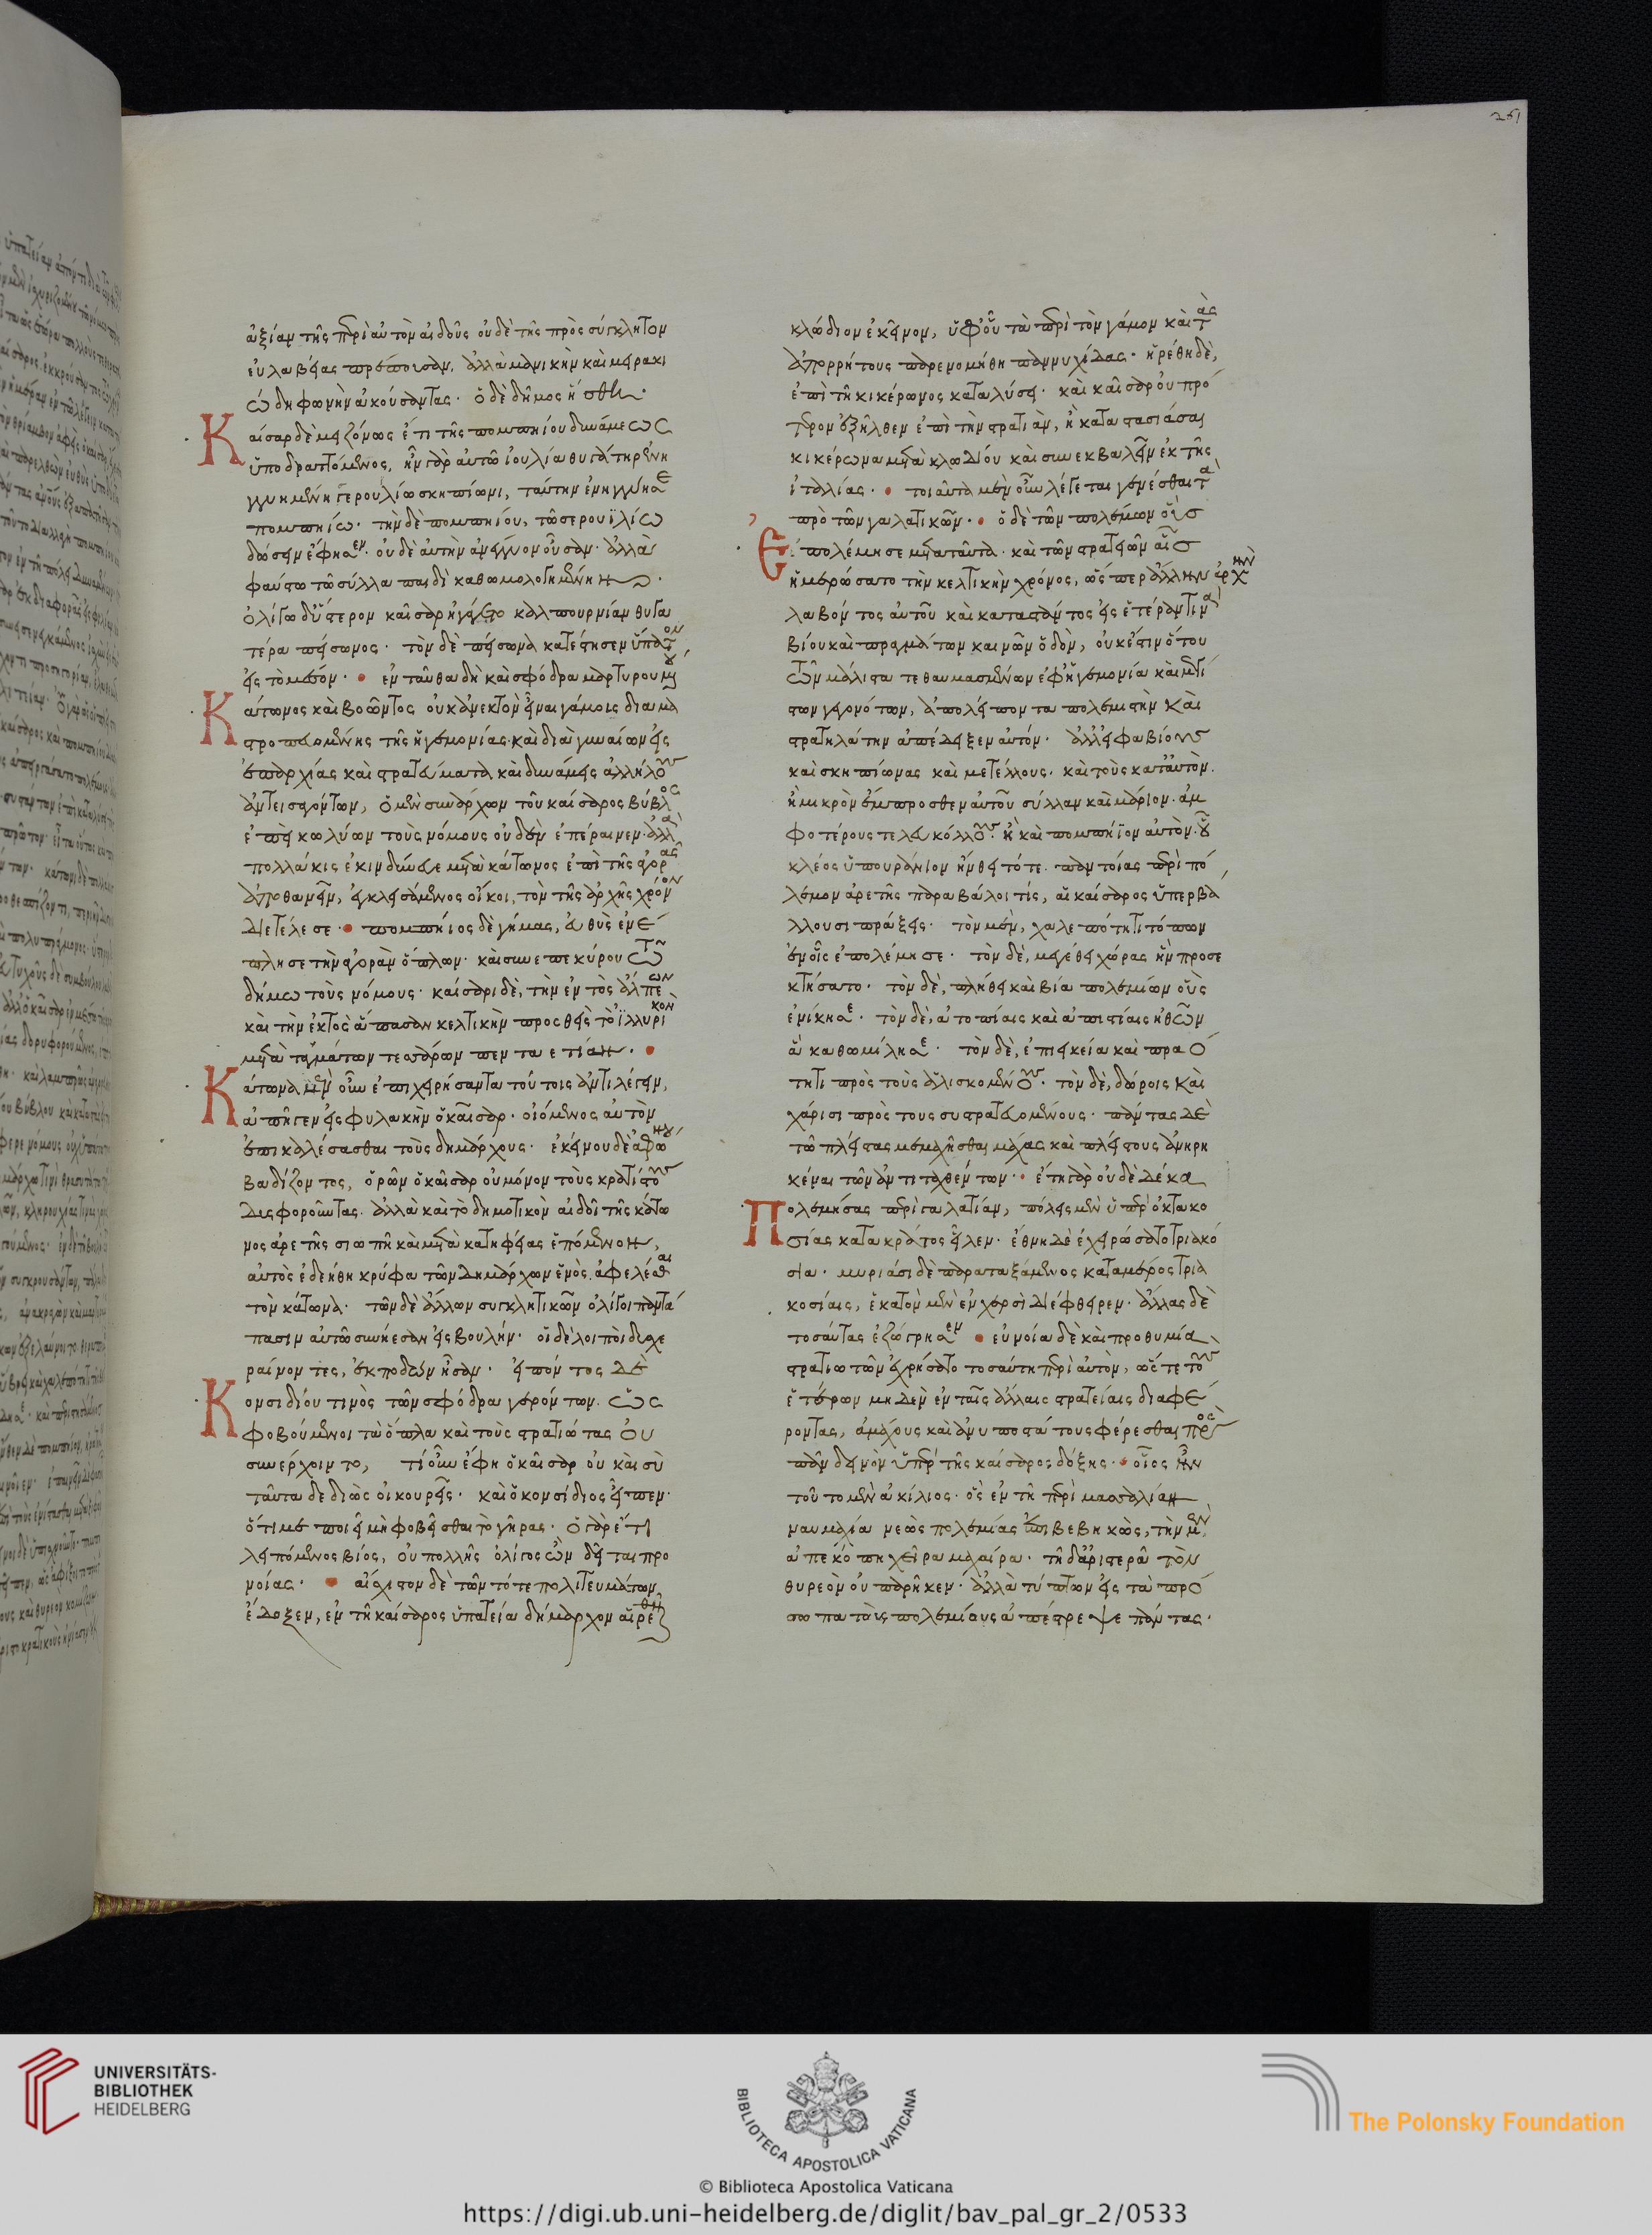 261
ἀξίαν τῆς περὶ αὐτὸν αἰδοῦς οὐδὲ τῆς πρὸς σύγκλητον
εὐλαβείας πρέπουσαν, ἀλλὰ μανικὴν καὶ μειρακι
ώδη φωνὴν ἀκούσαντας· ὁ δὲ δῆμος ἥσθη·
Καίσαρ δὲ μειζόνως ἔτι τῆς πομπηίου δυνάμεως
ὑποδραττόμενος, ἦν γὰρ αὐτῶ ἰουλία θυγάτηρ ἐνη
γγυημένη σερουιλίω σκηπίωνι, ταύτην ἐνηγγύησε
πομπηίω· τὴν δὲ πομπηίου, τῶ σερουϊλίω
δώσειν ἔφησεν· οὐδὲ αὐτὴν ἀνέγγυον οὖσαν· ἀλλὰ
φαύστω τῶ σύλλα παιδὶ καθωμολογημένην·
ὀλίγω δ' ὕστερον καῖσαρ ἠγάγετο καλπουρνίαν θυγα
τέρα πείσωνος· τὸν δὲ πείσωνα κατέστησεν ὕπατον
εἰς τὸ μέλλον· ἐνταῦθα δὴ καὶ σφόδρα μαρτυρουμένου
Κάτωνος καὶ βοῶντος οὐκ ἀνεκτὸν εἶναι γάμοις διαμα
στροπευομένης τῆς ἡγεμονίας· καὶ διὰ γυναίων εἰς
ἐπαρχίας καὶ στρατεύματα καὶ δυνάμεις ἀλλήλους
ἀντεισαγόντων, ὁ μὲν συνάρχων τοῦ καίσαρος βύβλος
ἐπεὶ κωλύων τοὺς νόμους οὐδὲν ἐπέραινεν· ἀλλὰ
πολλάκις ἐκινδύνευε μετὰ κάτωνος ἐπὶ τῆς ἀγορᾶς
ἀποθανεῖν, ἐγκλεισάμενος οἴκοι, τὸν τῆς ἀρχῆς χρόνον
διετέλεσε· πομπήιος δὲ γήμας, εὐθὺς ἐνέ
πλησε τὴν ἀγορὰν ὅπλων· καὶ συνεπεκύρου τῶ
δήμω τοὺς νόμους· καίσαρι δὲ, τὴν ἐντὸς ἄλπεων
καὶ τὴν ἐκτὸς ἅπασαν κελτικὴν προσθεὶς τὸ ἰλλυρικὸν
μετὰ ταγμάτων τεσσάρων πενταετίαν·
Κάτωνα μὲν οὖν ἐπιχειρήσαντα τούτοις ἀντιλέγειν,
ἀπῆγεν εἰς φυλακὴν ὁ καῖσαρ· οἰόμενος αὐτὸν
ἐπικαλέσασθαι τοὺς δημάρχους· ἐκείνου δὲ ἀφώνου
βαδίζοντος, ὁρῶν ὁ καῖσαρ οὐ μόνον τοὺς κρατίστους
δυσφοροῦντας· ἀλλὰ καὶ τὸ δημοτικὸν αἰδοῖ τῆς κάτω
νος ἀρετῆς σιωπῆ καὶ μετὰ κατηφείας ἑπόμενον,
αὐτὸς ἐδεήθη κρύφα τῶν δημάρχων ἑνὸς ἀφελέσθαι
τὸν κάτωνα· τῶν δὲ ἄλλων συγκλητικῶν ὀλίγοι παντά
πασιν αὐτῶ συνήεσαν εἰς βουλήν· οἱ δὲ λοιποὶ δυσχε
ραίνοντες, ἐκποδὼν ἦσαν· εἰπόντος δὲ
Κονσιδίου τινὸς τῶν σφόδρα γερόντων· ὡς
φοβούμενοι τὰ ὅπλα καὶ τοὺς στρατιώτας οὐ
συνέρχοιντο, τί οὖν ἔφη ὁ καῖσαρ οὐ καὶ σὺ
ταῦτα δεδιὼς οἰκουρεῖς· καὶ ὁ κονσίδιος εἶπεν·
ὅτι με ποιεῖ μὴ φοβεῖσθαι τὸ γῆρας· ὁ γὰρ ἔτι
λειπόμενος βίος, οὐ πολλῆς ὀλίγος ὢν δεῖται προ
νοίας· αἴσχιστον δὲ τῶν τότε πολιτευμάτων,
ἔδοξεν, ἐν τῆ καίσαρος ὑπατεία δήμαρχον αἱρεθῆναι
κλώδιον ἐκεῖνον, ὑφ' οὗ τὰ περὶ τὸν γάμον καὶ τὰς
ἀπορρήτους παρενομήθη παννυχίδας· ἡρέθη δὲ,
ἐπὶ τῆ κικέρωνος καταλύσει· καὶ καῖσαρ οὐ πρό
τερον ἐξῆλθεν ἐπὶ τὴν στρατιὰν, ἢ καταστασιάσαι
κικέρωνα μετὰ κλωδίου καὶ συνεκβαλεῖν ἐκ τῆς
ἰταλίας· τοιαῦτα μὲν οὖν λέγεται γενέσθαι τὰ
πρὸ τῶν γαλατικῶν· ὁ δὲ τῶν πολέμων οὓς
Ἐπολέμησε μετὰ ταῦτα· καὶ τῶν στρατειῶν αἷς
ἡμερώσατο τὴν κελτικὴν χρόνος, ὥσπερ ἄλλην ἀρχὴν
λαβόντος αὐτοῦ καὶ καταστάντος εἰς ἑτέραν τινὰ
βίου καὶ πραγμάτων καινῶν ὁδὸν, οὐκ ἔστιν ὅτου
τῶν μάλιστα τεθαυμασμένων ἐφ' ἡγεμονία καὶ μεγί
στων γεγονότων, ἀπολείποντα πολεμιστὴν καὶ
στρατηλάτην ἀπέδειξεν αὐτόν· ἀλλ' εἴτε φαβίους
καὶ σκηπίωνας καὶ μετέλλους· καὶ τοὺς κατ' αὐτὸν
ἢ μικρὸν ἔμπροσθεν αὐτοῦ σύλλαν καὶ μάριον· ἀμ
φοτέρους τε λευκόλλους· ἢ καὶ πομπήϊον αὐτὸν· οὗ
κλέος ὑπουράνιον ἤνθει τότε· παντοίας περὶ πό
λεμον ἀρετῆς παραβάλοι τίς, αἱ καίσαρος ὑπερβά
λλουσι πράξεις· τὸν μὲν, χαλεπότητι τόπων
ἐν οἷς ἐπολέμησε· τὸν δὲ, μεγέθει χώρας ἣν προσε
κτήσατο· τὸν δὲ, πλήθει καὶ βία πολεμίων οὓς
ἐνίκησε· τὸν δὲ, ἀτοπίαις καὶ ἀπιστίαις ἠθῶν
ἃ καθωμίλησε· τὸν δὲ, ἐπιεικεία καὶ πραό
τητι πρὸς τοὺς ἁλισκομένους· τὸν δὲ, δώροις καὶ
χάρισι πρὸς τους συστρατευομένους· πάντας δὲ
τῶ πλείστας μεμαχῆσθαι μάχας καὶ πλείστους ἀνηρη
κέναι τῶν ἀντιταχθέντων· ἔτη γὰρ οὐδὲ δέκα
Πολεμήσας περὶ γαλατίαν, πόλεις μὲν ὑπὲρ ὀκτακο
σίας κατὰ κράτος εἷλεν· ἔθνη δὲ ἐχειρώσατο τριακό
σια· μυριάσι δὲ παραταξάμενος κατὰ μέρος τρια
κοσίαις, ἑκατὸν μὲν ἐν χερσὶ διέφθειρεν· ἄλλας δὲ
τοσαύτας ἐζώγρησεν· εὐνοία δὲ καὶ προθυμία
στρατιωτῶν ἐχρήσατο τοσαύτη περὶ αὐτὸν, ὥστε τοὺς
ἑτέρων μηδὲν ἐν ταῖς ἄλλαις στρατείαις διαφέ
ροντας, ἀμάχους καὶ ἀνυποστάτους φέρεσθαι πρὸς
πᾶν δεινὸν ὑπὲρ τῆς καίσαρος δόξης· οἷος ἦν
τοῦτο μὲν ἀκίλιος· ὃς ἐν τῆ περὶ μασσαλίαν
ναυμαχία νεὼς πολεμίας ἐπιβεβηκὼς, τὴν μὲν
ἀπεκόπη χεῖρα μαχαίρα· τῆ δ' ἀριστερᾶ τὸν
θυρεὸν οὐ παρῆκεν· ἀλλὰ τύπτων εἰς τὰ πρό
σωπα τοὺς πολεμίους ἀπέστρεψε πάντας·
UNIVERSITÄTS-
BIBLIOTHEK
HEIDELBERG
BIBLIOTECA APOSTOLICA VATICANA
The Polonsky Foundation
© Biblioteca Apostolica Vaticana
https://digi.ub.uni-heidelberg.de/diglit/bav_pal_gr_2/0533